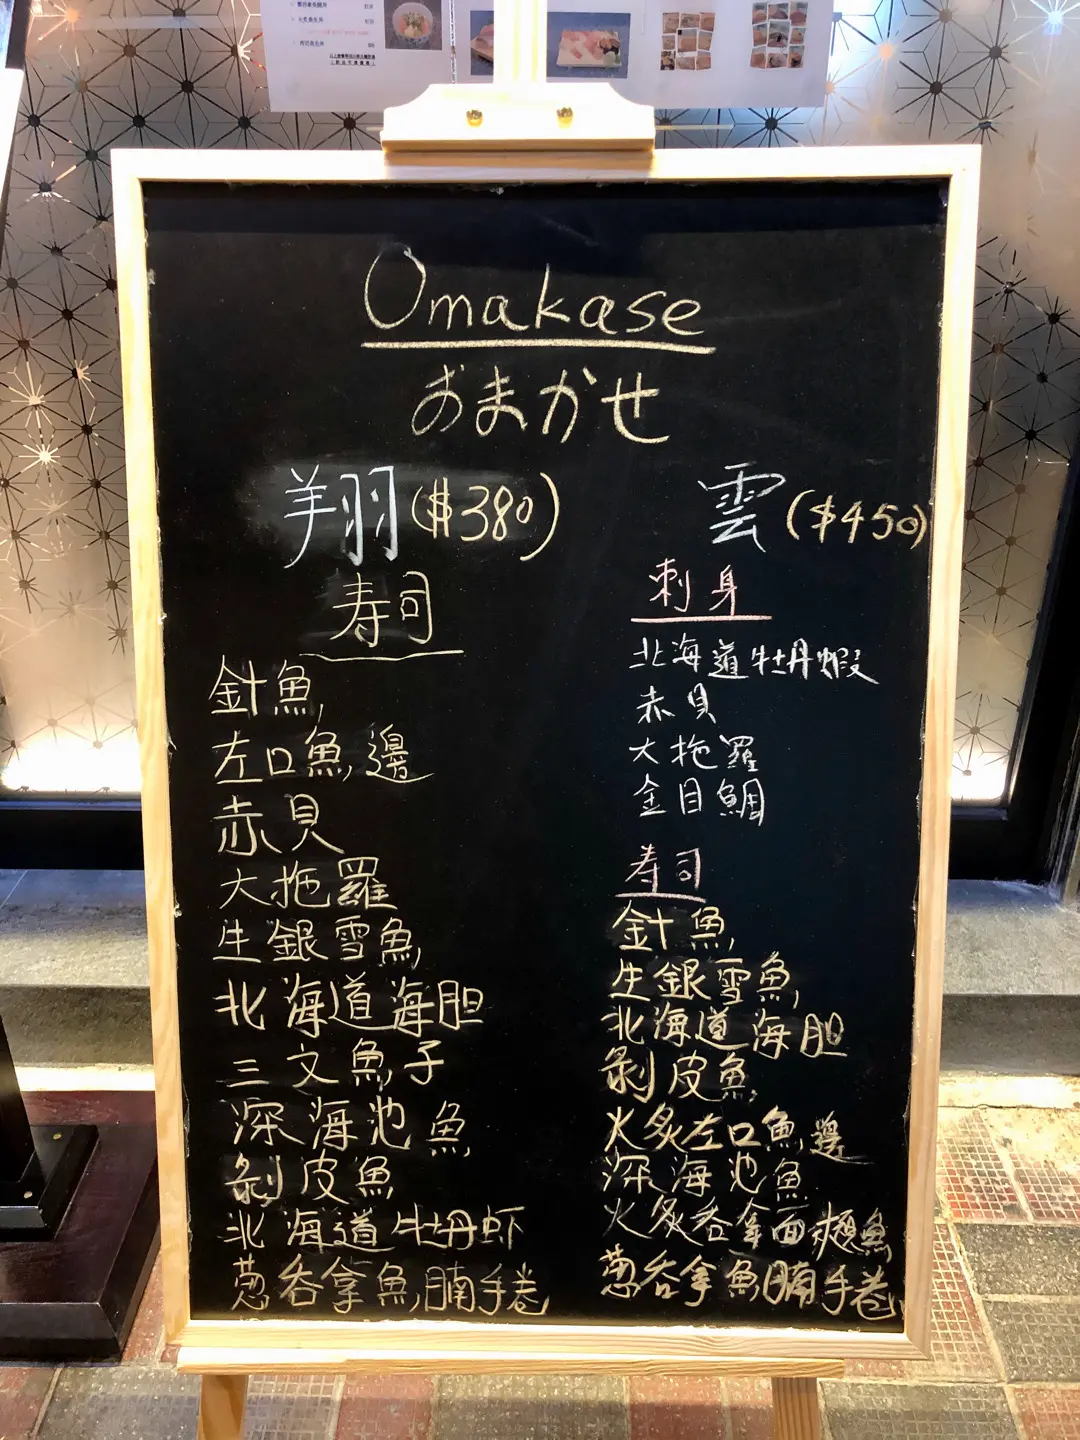 Omakase
おまかせ
翔($380)
寿司
針魚
左口魚邊
赤貝
大拖羅
生銀雪魚
北海道海胆
三文魚子
深海池魚
剝皮魚
北海道牡丹虾
葱吞拿魚腩手卷
雲($450)
刺身
北海道牡丹蝦
赤貝
大拖羅
金目鯛
寿司
針魚
生銀雪魚
北海道海胆
剝皮魚
火炙左口魚邊
深海池魚
火炙吞拿面頰魚
葱吞拿魚腩手卷